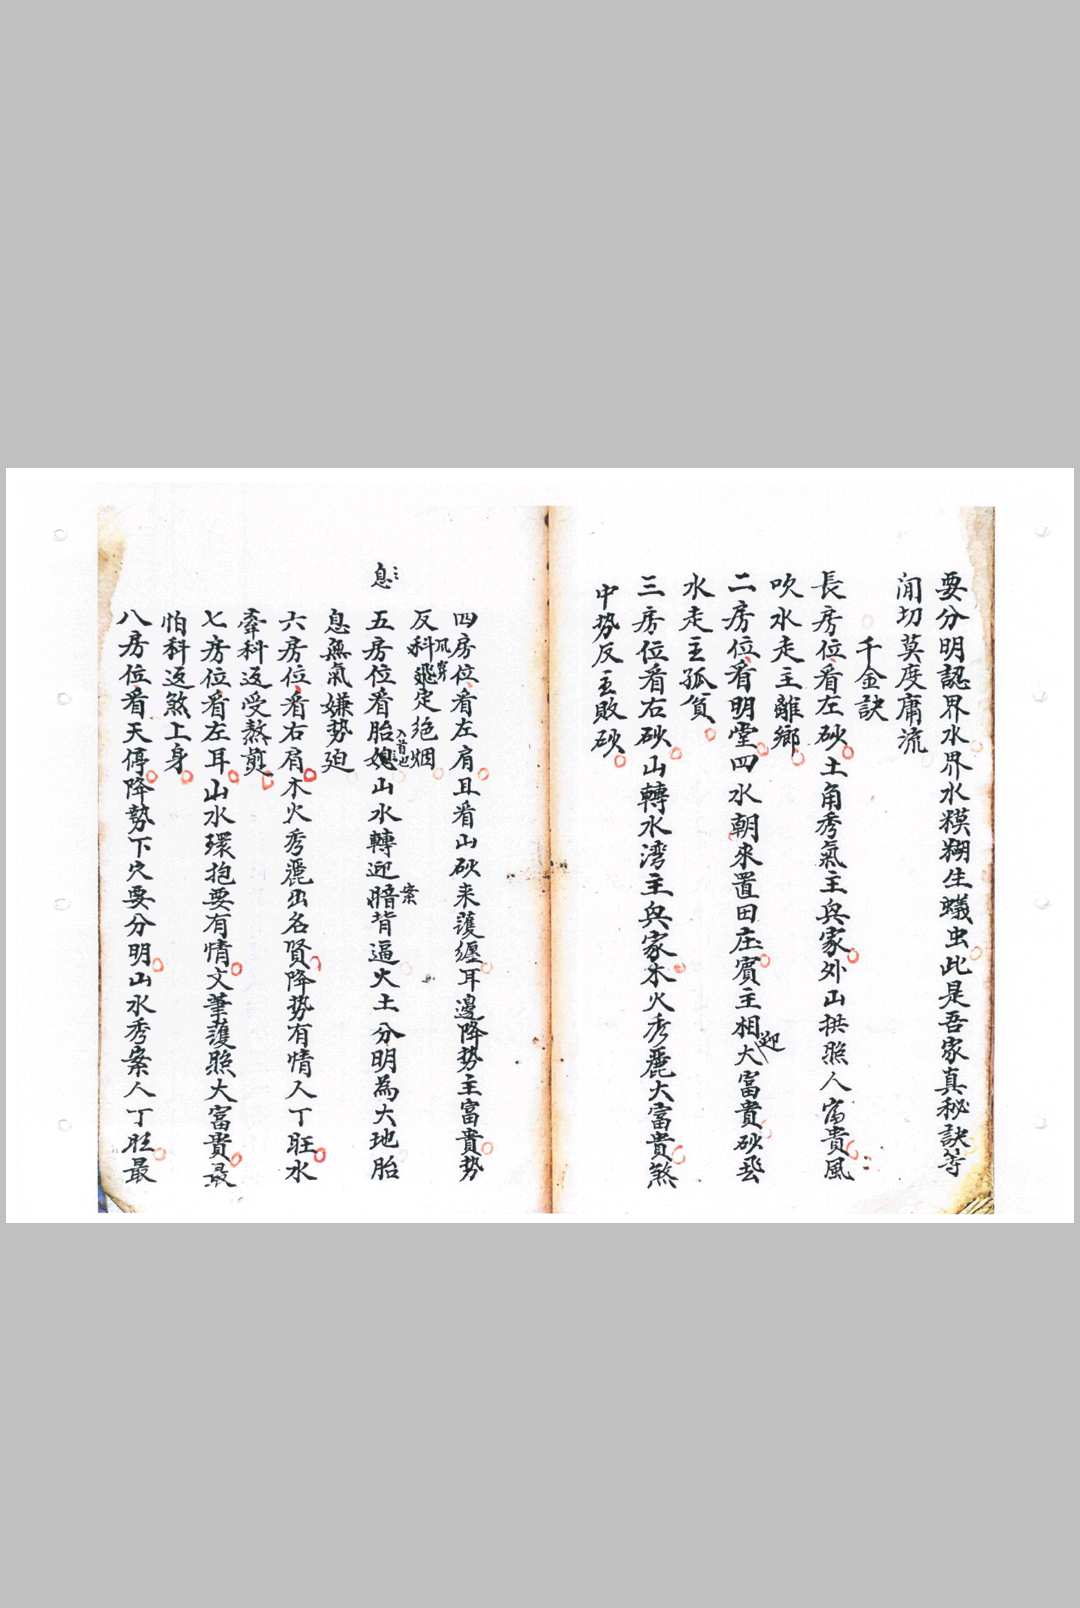 要分明認界水界水糢糊生蟻虫此是吾家真秘訣等
閒切莫度庸流
千金訣
長房位看左砂土角秀氣主興家外山拱照人富貴風
吹水走主離鄉
二房位看明堂四水朝來置田庄賓主相迎大富貴砂飛
水走主孤貧
三房位看右砂山轉水湾主興家木火秀麗大富貴煞
中勢反主敗砂
四房位看左肩且看山砂来護纏耳邊降勢主富貴勢
反科飛定絕烟
風穿
息
五房位看胎息山水轉迎暗背逼火土分明為大地胎
入首也
案
息無氣嫌勢迫
六房位看右肩木火秀麗出名賢降勢有情人丁旺水
牽科返受熬煎
七房位看左耳山水環抱要有情文筆護照大富貴最
怕科返煞上身
八房位看天停降勢下穴要分明山水秀案人丁旺最